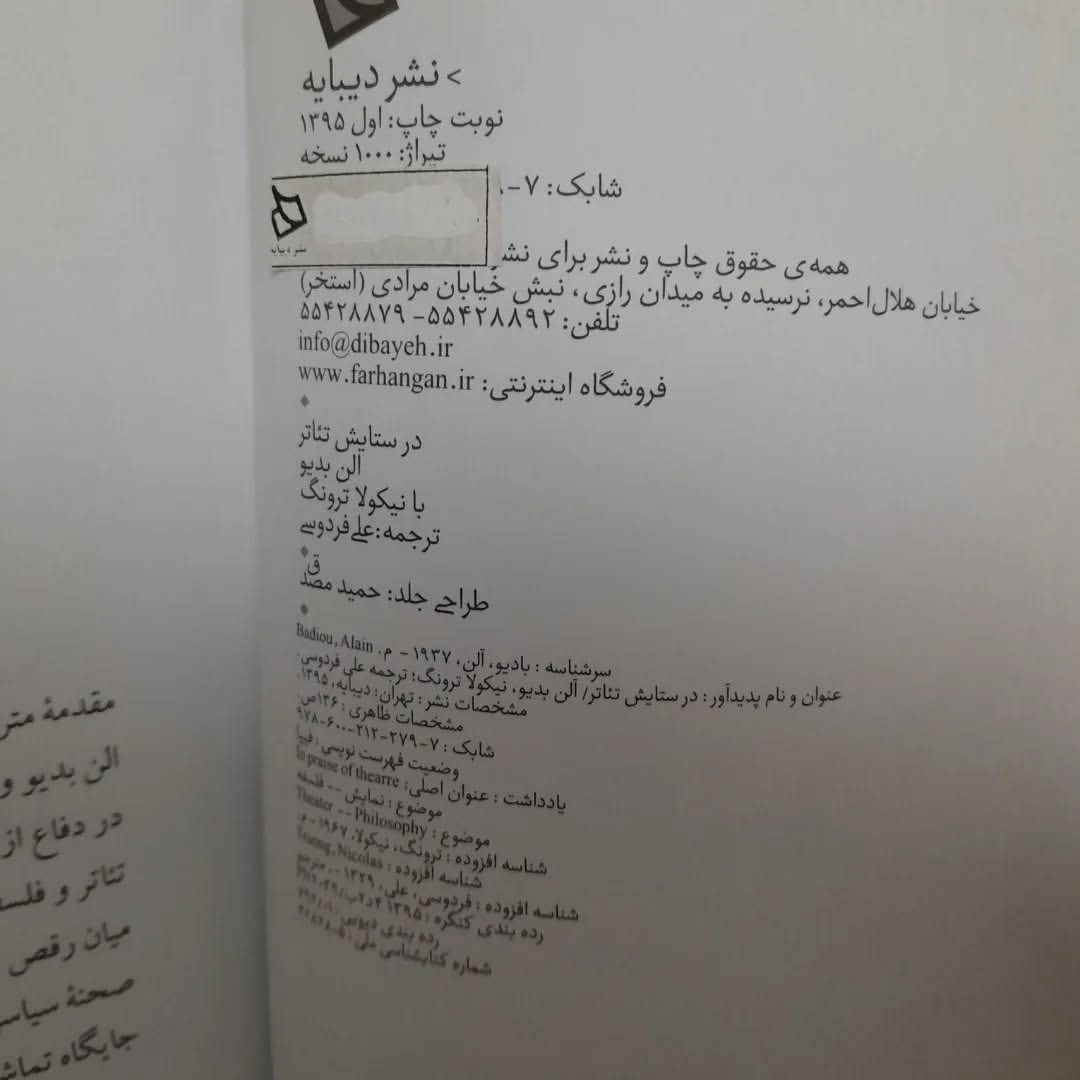 > نشر دیبایه
نوبت چاپ: اول ۱۳۹۵
تیراژ: ۱۰۰۰ نسخه
شابک: ۷-
نشر دیبایه
همه‌ی حقوق چاپ و نشر برای نشر
خیابان هلال‌احمر، نرسیده به میدان رازی، نبش خیابان مرادی (استخر)
تلفن: ۵۵۴۲۸۸۹۲- ۵۵۴۲۸۸۷۹
info@dibayeh.ir
فروشگاه اینترنتی: www.farhangan.ir
در ستایش تئاتر
الن بدیو
با نیکولا ترونگ
ترجمه:علی فردوسی
طراحی جلد: حمید مصدق
سرشناسه : بادیو، آلن، ۱۹۳۷ - م. Badiou, Alain
عنوان و نام پدیدآور : در ستایش تئاتر/ آلن بدیو، نیکولا ترونگ؛ ترجمه علی فردوسی.
مشخصات نشر : تهران: دیبایه، ۱۳۹۵.
مشخصات ظاهری : ۱۳۶ص.
شابک : ۷-۲۷۹-۲۱۲-۶۰۰-۹۷۸
وضعیت فهرست نویسی : فیپا
یادداشت : عنوان اصلی: In praise of thearre
موضوع : نمایش -- فلسفه
موضوع : Theater -- Philosophy
شناسه افزوده : ترونگ، نیکولا، ۱۹۶۷ - م.
شناسه افزوده : Truong, Nicolas
شناسه افزوده : فردوسی، علی، ۱۳۲۹ -، مترجم
رده بندی کنگره : ۱۳۹۵
رده بندی دیویی :
شماره کتابشناسی ملی :
مقدمهٔ متر
الن بدیو و
در دفاع از
تئاتر و فلسف
میان رقص
صحنهٔ سیاسی
جایگاه تماش